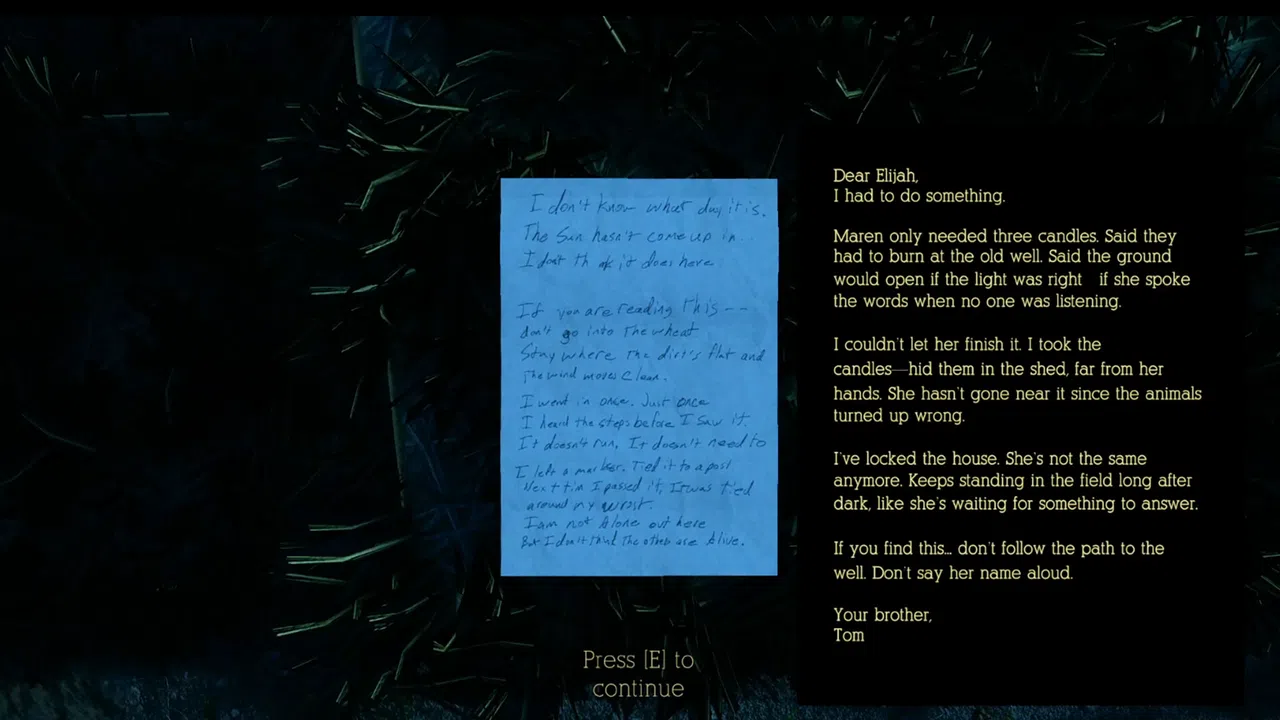 I don't know what day it is.
The Sun hasn't come up in..
I don't think it does here
If you are reading this --
don't go into The wheat
Stay where The dirt's flat and
The wind moves Clean.
I went in once. Just once
I heard the steps before I saw it.
It doesn't run, It doesn't need to
I left a marker. Tied it to a post
Next tim I passed it, It was tied
around my wrist.
I am not Alone out here
But I don't think The other are Alive.
Dear Elijah,
I had to do something.
Maren only needed three candles. Said they
had to burn at the old well. Said the ground
would open if the light was right if she spoke
the words when no one was listening.
I couldn't let her finish it. I took the
candles—hid them in the shed, far from her
hands. She hasn't gone near it since the animals
turned up wrong.
I've locked the house. She's not the same
anymore. Keeps standing in the field long after
dark, like she's waiting for something to answer.
If you find this... don't follow the path to the
well. Don't say her name aloud.
Your brother,
Tom
Press [E] to
continue